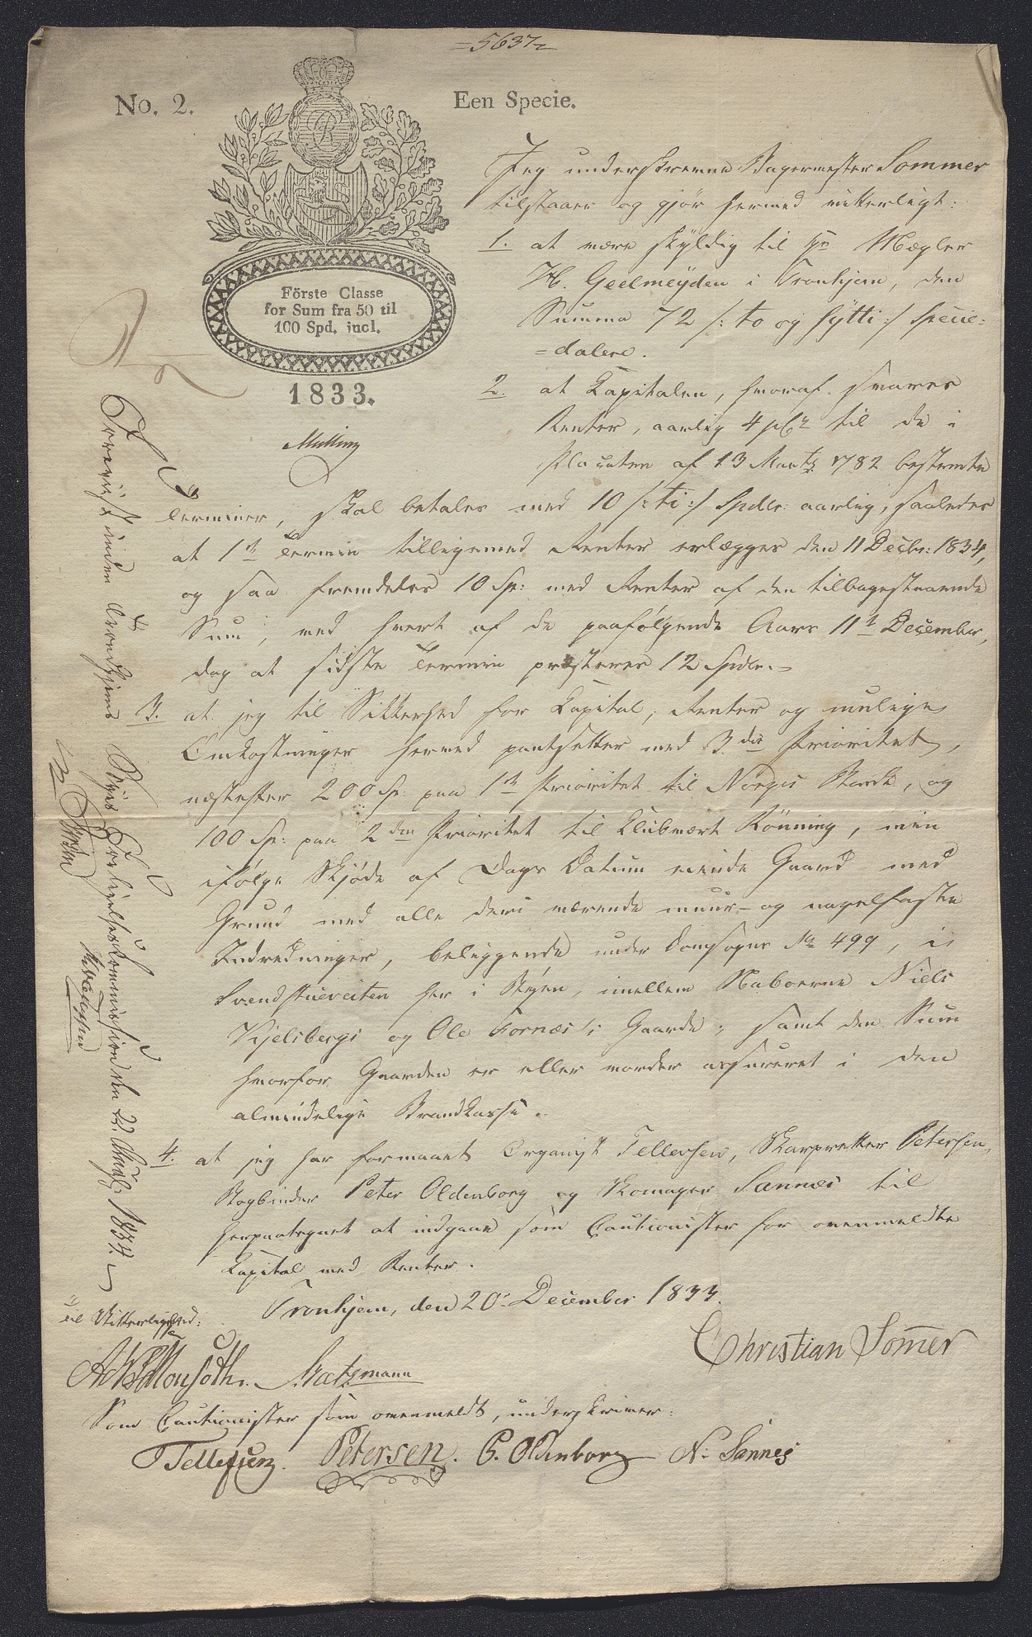 =5637=
No. 2.
Een Specie.
Förste Classe
for Sum fra 50 til
100 Spd. incl.
1833.
Mølling
Jeg underskrevne Bagermester Sommer
tilstaaer og gjør hermed vitterligt:
1. at være skyldig til Hr Mægler
H. Geelmeÿden i Tronhjem, den
Summa 72 /: to og sÿtti :/ Specie-
=dalere.
2. at Kapitalen, hvoraf svares
Renter, aarlig 4 pCt til de i
Placaten af 13 Marts 1782 bestemte
Terminer, skal betales med 10 /: ti :/ Spdlr: aarlig, saaledes
at 1ste Termin tilligemed Renter erlægges den 11 Decbr: 1834,
og saa fremdeles 10 Sp: med Renter af den tilbagestaaende
Sum, ved hvert af de paafølgende Aars 11te December,
dog at sidste Termin præsteres 12 Spdlr.=
3. at jeg til Sikkerhed for Capital, Renter og mulige
Omkostninger hermed pantsætter med 3die Prioritet,
næstefter 200 Sp: paa 1ste Prioritet til Norges Bank, og
100 Sp: paa 2den Prioritet til Klubvært Rönning, min
ifølge Skjøde af Dags Datum eiende Gaard med
Grund med alle deri værende muur- og nagelfaste
Indredninger, beliggende under Domsogns No 499, i
Svendstueveiten her i Byen, imellem Naboerne Niels
Kjelsbergs og Ole Fornæs's Gaarde; samt den Sum
hvorfor Gaarden er eller vorder assureret i den
almindelige Brandkasse.
4. at jeg har formaaet Organist Tellefsen, Skarpretter Petersen,
Bogbinder Peter Oldenborg og Skomager Sannes til
herpaategnet at indgaae som Cautionister for ovenmeldte
Capital med Renter.
Tronhjem, den 20de December 1833.
Christian Somer
Til Vitterlighed:
Matzmann
Som Cautionister som ovenmeldt, underskriver:
Tellefsen. Petersen. P. Oldenborg N: Sannes
Foreviist inden Trondhjems Byes Forligelsescommission den 22 1834.